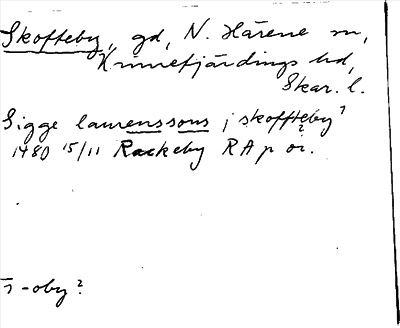 Skofteby, gd, N. Härene sn,
Kinnefjärdings hd,
Skar. l.
Sigge laurenssons j skoffteby?
1480 15/11 Rackeby RA p or.
-oby?